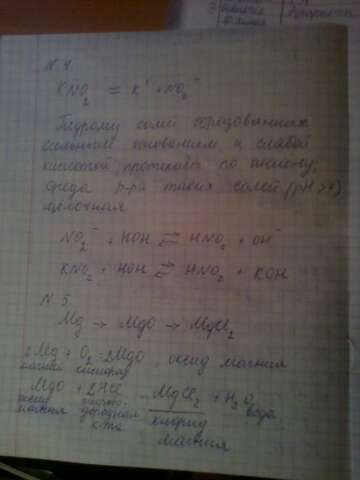 N. 4
KNO₂ = K⁺ + NO₂⁻
Гидролиз солей образованных
сильным основанием и слабой
кислотой протекает по аниону,
среда р-ра таких солей (pH > 7)
щелочная
NO₂⁻ + HOH ⇄ HNO₂ + OH⁻
KNO₂ + HOH ⇄ HNO₂ + KOH
N. 5
Mg → MgO → MgCl₂
2Mg + O₂ = 2MgO оксид магния
магний кислород
MgO + 2HCl = MgCl₂ + H₂O
оксид хлорово- вода
магния дородная хлорид
к-та магния